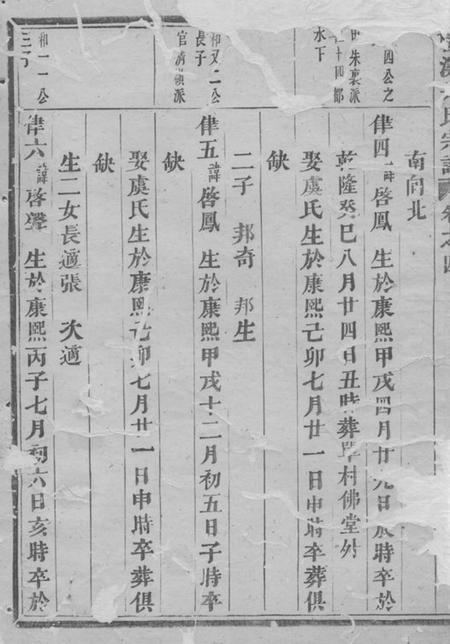 氏宗譜 卷之四
南向北
四公之
朱裏派
十四都
水下
律四 諱啓鳳 生於康熙甲戌四月廿九日辰時卒於
乾隆癸巳八月廿四日丑時葬單村佛堂外
娶虞氏生於康熙己卯七月廿一日申時卒葬俱
缺
二子 邦奇 邦生
和又二公
長子
官清領派
律五 諱啓鳳 生於康熙甲戌十二月初五日子時卒
缺
娶虞氏生於康熙己卯七月廿一日申時卒葬俱
缺
生二女長適張 次適
和一一公
三子
律六 諱啓聲 生於康熙丙子七月初六日亥時卒於